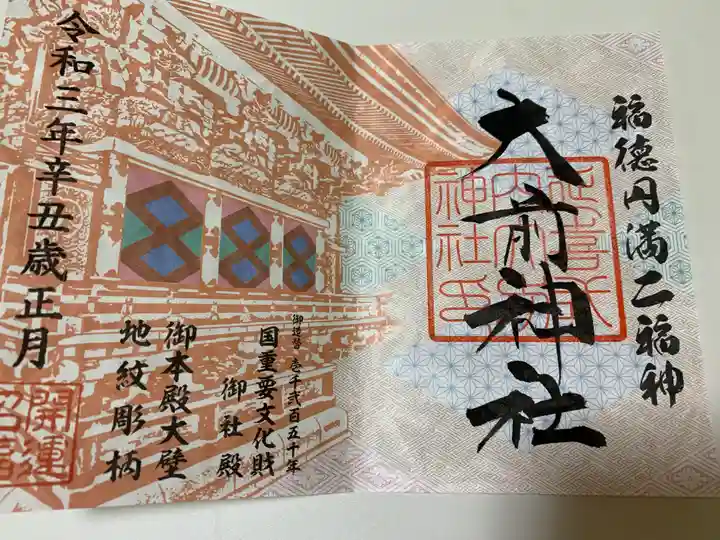 福徳円満二福神
大前神社
延喜式内大前神社印
御鎮祭 壱千弐百五十年
国重要文化財
御社殿
御本殿大壁
地紋彫柄
令和三年辛丑歳正月
開運招福